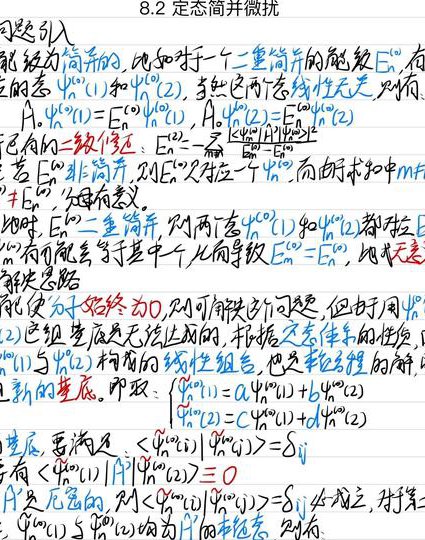 8.2 定态简并微扰
问题引入
能级为简并的, 比如对于一个二重简并的能级 Eₙ⁽⁰⁾, 有
的态 ψₙ⁽⁰⁾(1)和ψₙ⁽⁰⁾(2), 当然这两个态线性无关, 则有:
Ĥ₀ψₙ⁽⁰⁾(1)=Eₙ⁽⁰⁾ψₙ⁽⁰⁾(1), Ĥ₀ψₙ⁽⁰⁾(2)=Eₙ⁽⁰⁾ψₙ⁽⁰⁾(2)
已有的二级修正: Eₙ⁽²⁾=-Σ |<ψₘ⁽⁰⁾|Ĥ'|ψₙ⁽⁰⁾>|²/(Eₘ⁽⁰⁾-Eₙ⁽⁰⁾)
若 Eₙ⁽⁰⁾ 非简并, 则Eₙ⁽⁰⁾只对应一个ψₙ⁽⁰⁾, 而由于求和中m≠
≠Eₙ⁽⁰⁾, 分母有意义。
此时, Eₙ⁽⁰⁾二重简并, 则两个态ψₙ⁽⁰⁾(1)和ψₙ⁽⁰⁾(2)都对应E
有可能会等于其中一个, 从而导致 Eₘ⁽⁰⁾=Eₙ⁽⁰⁾, 此式无意
解决思路
能使分子始终为0, 则可解决这个问题, 但由于用ψₙ⁽⁰⁾
(2)这组基底是无法达成的, 根据定态体系的性质,
(1)与ψₙ⁽⁰⁾(2)构成的线性组合, 也是本征方程的解,
新的基底。即取: { ψ̃ₙ⁽⁰⁾(1)=aψₙ⁽⁰⁾(1)+bψₙ⁽⁰⁾(2)
ψ̃ₙ⁽⁰⁾(2)=cψₙ⁽⁰⁾(1)+dψₙ⁽⁰⁾(2)
基底, 要满足: <ψ̃ₙ⁽⁰⁾(i)|ψ̃ₙ⁽⁰⁾(j)>=δij
有 <ψ̃ₙ⁽⁰⁾(1)|Ĥ'|ψ̃ₙ⁽⁰⁾(2)>≡0
Ĥ'是厄密的, 则<ψ̃ₙ⁽⁰⁾(i)|ψ̃ₙ⁽⁰⁾(j)>=δij 必成立, 对于第二
ψ̃ₙ⁽⁰⁾(1)与ψ̃ₙ⁽⁰⁾(2)均为Ĥ'的本征态, 则有: